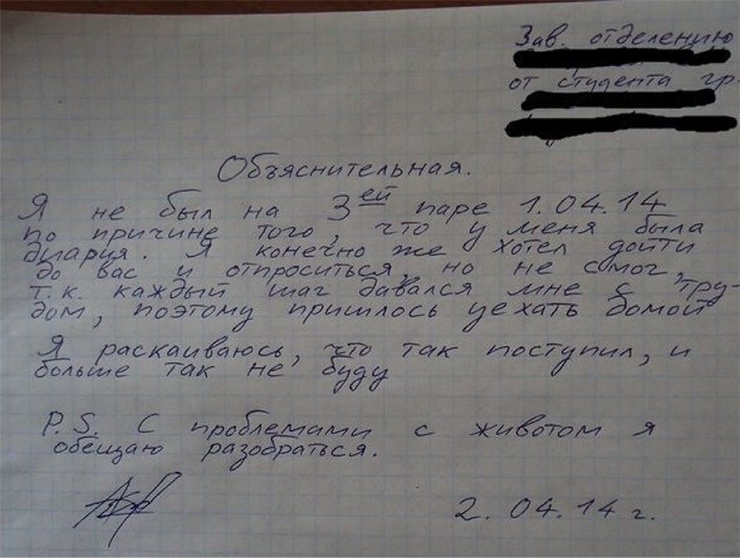 Зав. отделению
от студента гр.
Объяснительная.
Я не был на 3ей паре 1.04.14
по причине того, что у меня была
диарея. Я конечно же хотел дойти
до вас и отпроситься, но не смог,
т.к. каждый шаг давался мне с тру-
дом, поэтому пришлось уехать домой
Я раскаиваюсь, что так поступил, и
больше так не буду
P.S. С проблемами с животом я
обещаю разобраться.
2.04.14 г.